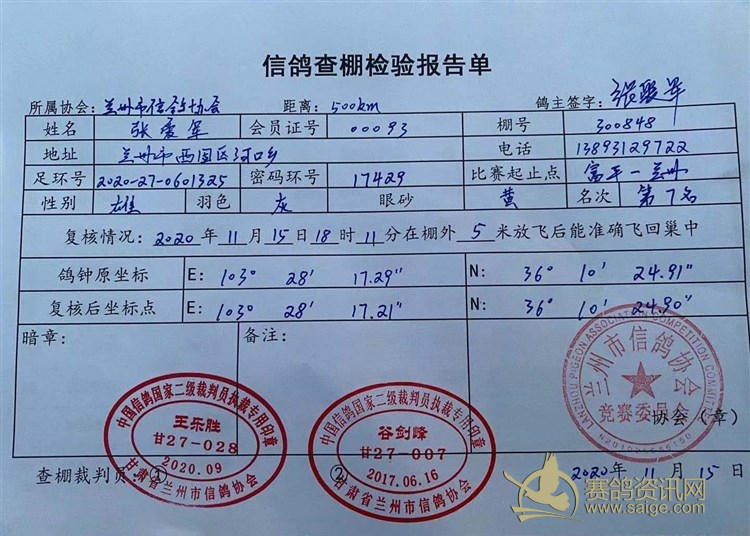 信鸽查棚检验报告单
所属协会：兰州市信鸽协会 距离：500km 鸽主签字：张爱军
姓名 张爱军 会员证号 00093 棚号 300848
地址 兰州市西固区河口乡 电话 13893129722
足环号 2020-27-0601325 密码环号 17429 比赛起止点 富平—兰州
性别 雄 羽色 灰 眼砂 黄 名次 第7名
复核情况：2020年11月15日18时11分在棚外5米放飞后能准确飞回巢中
鸽钟原坐标 E：103° 28′ 17.29″ N：36° 10′ 24.91″
复核后坐标点 E：103° 28′ 17.21″ N：36° 10′ 24.90″
暗章： 备注：
LANZHOU PIGEON ASSOCIATION COMPETITION COMMITTEE
兰州市信鸽协会
竞赛委员会
协会（章）
中国信鸽国家二级裁判员执裁专用印章
王乐胜
甘27-028
2020.09
甘肃省兰州市信鸽协会
中国信鸽国家二级裁判员执裁专用印章
谷剑峰
甘27-007
2017.06.16
甘肃省兰州市信鸽协会
查棚裁判员：① ② 2020年11月15日
赛鸽资讯网
www.saige.com